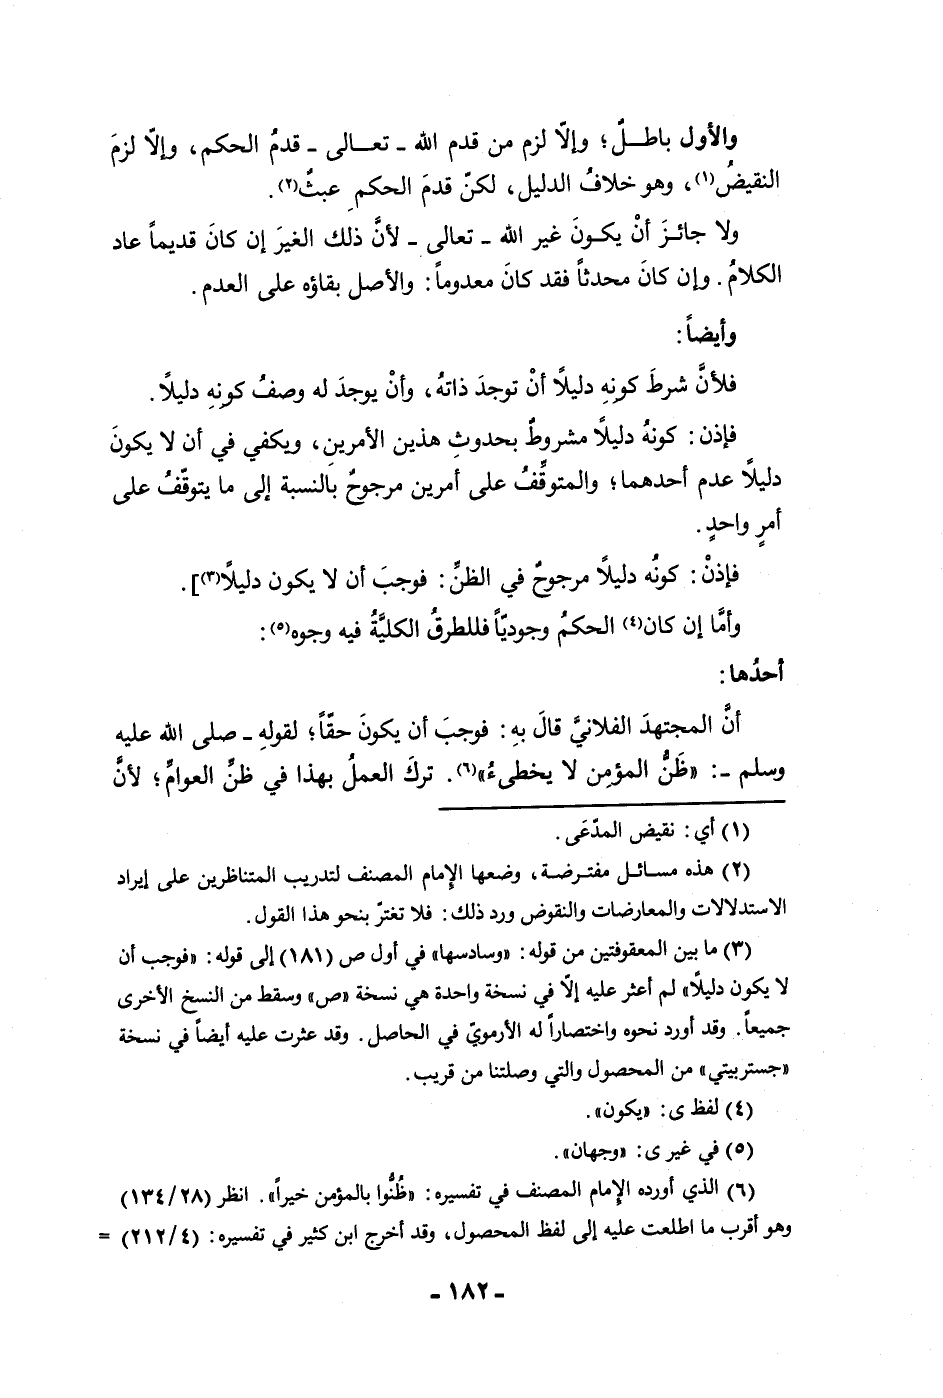 والأول باطـلٌ؛ وإلّا لزم من قدم الله ـ تعـالى ـ قدمُ الحكم، وإلّا لزمَ
النقيضُ(١)، وهو خلافُ الدليل، لكنّ قدمَ الحكمِ عبثٌ(٢).
ولا جائـزَ أنْ يكـونَ غير الله ـ تعالى ـ لأنَّ ذلك الغيرَ إن كانَ قديماً عاد
الكلامُ. وإن كانَ محدثاً فقد كانَ معدوماً: والأصل بقاؤه على العدم.
وأيضاً:
فلأنَّ شرطَ كونِهِ دليلًا أنْ توجدَ ذاتهُ، وأنْ يوجدَ له وصفُ كونِهِ دليلًا.
فإذن: كونهُ دليلًا مشروطٌ بحدوثِ هذين الأمرينِ، ويكفي في أن لا يكونَ
دليلًا عدم أحدهما؛ والمتوقِّفُ على أمرين مرجوحٌ بالنسبة إلى ما يتوقّفُ على
أمرٍ واحدٍ.
فإذنْ: كونُه دليلًا مرجوحٌ في الظنِّ: فوجبَ أن لا يكون دليلًا(٣)].
وأمَّا إن كان(٤) الحكمُ وجوديّاً فللطرقُ الكليَّةُ فيه وجوه(٥):
أحدُها:
أنَّ المجتهدَ الفلانيَّ قالَ بهِ: فوجبَ أن يكونَ حقّاً؛ لقولهِ ـ صلى الله عليه
وسلم ـ: «ظَنُّ المؤمِن لا يخطىءُ»(٦). تركَ العملُ بهذا في ظنِّ العوامِّ؛ لأنَّ
(١) أي: نقيض المدّعَى.
(٢) هذه مسائـل مفتـرضـة، وضعها الإمام المصنف لتدريب المتناظرين على إيراد
الاستدلالات والمعارضات والنقوض ورد ذلك: فلا تغترّ بنحو هذا القول.
(٣) ما بين المعقوفتين من قوله: «وسادسها» في أول ص (١٨١) إلى قوله: «فوجب أن
لا يكون دليلًا» لم أعثر عليه إلّا في نسخة واحدة هي نسخة «ص» وسقط من النسخ الأخرى
جميعاً. وقد أورد نحوه واختصاراً له الأرمويّ في الحاصل. وقد عثرت عليه أيضاً في نسخة
«جستربيتي» من المحصول والتي وصلتنا من قريب.
(٤) لفظ ى: «يكون».
(٥) في غير ى: «وجهان».
(٦) الذي أورده الإمام المصنف في تفسيره: «ظُنُّوا بالمؤمن خيراً». انظر (١٣٤/٢٨)
وهو أقرب ما اطلعت عليه إلى لفظ المحصول، وقد أخرج ابن كثير في تفسيره: (٢١٢/٤) =
ـ ١٨٢ ـ